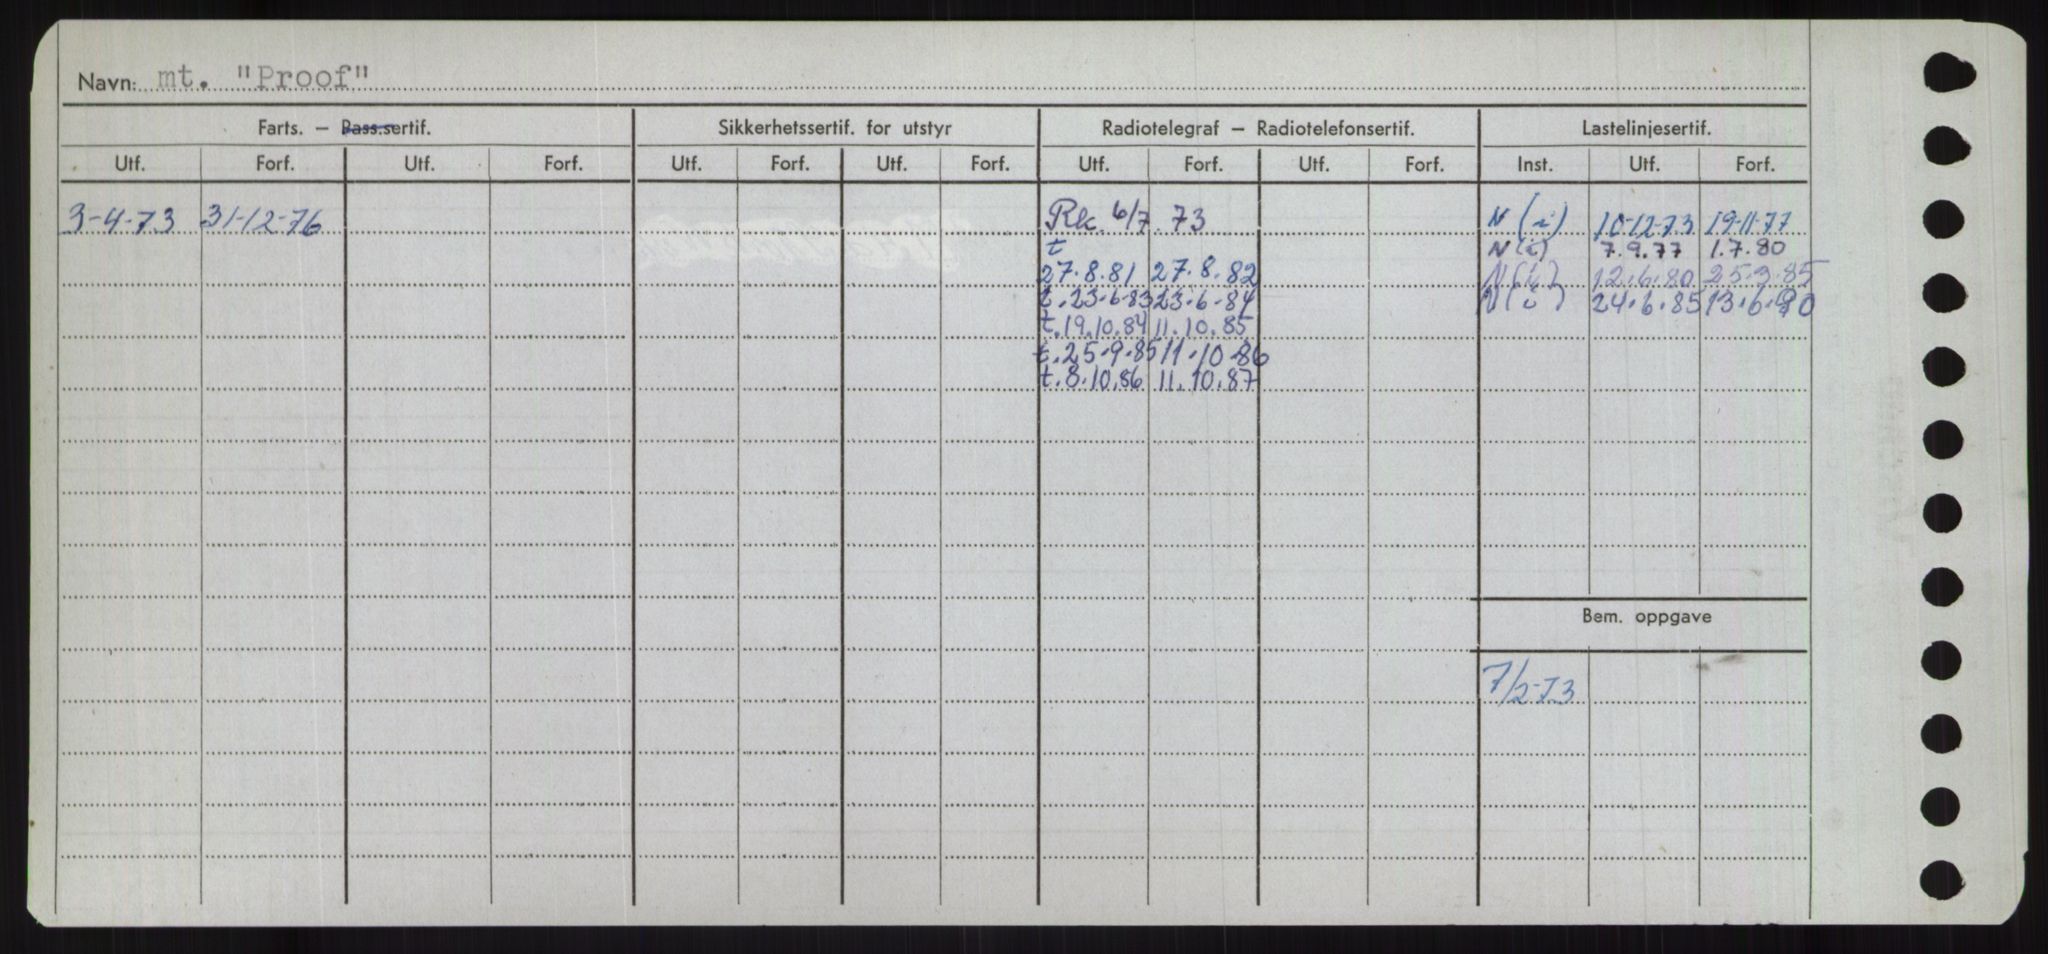 Navn: mt. "Proof"
Farts. – Pass.sertif. Sikkerhetssertif. for utstyr Radiotelegraf – Radiotelefonsertif. Lastelinjesertif.
Utf. Forf. Utf. Forf. Utf. Forf. Utf. Forf. Utf. Forf. Utf. Forf. Inst. Utf. Forf.
3-4-73 31-12-76 Rk. 6/7.73 N (i) 10-12-73 19-11-77
t N (i) 7.9.77 1.7.80
27.8.81 27.8.82 N(i) 12.6.80 25.3.85
t.23.6.83 23.6.84 N(i) 24.6.85 13.6.90
t.19.10.84 11.10.85
t.25.9.85 11.10.86
t.8.10.86 11.10.87
Bem. oppgave
7/2-73